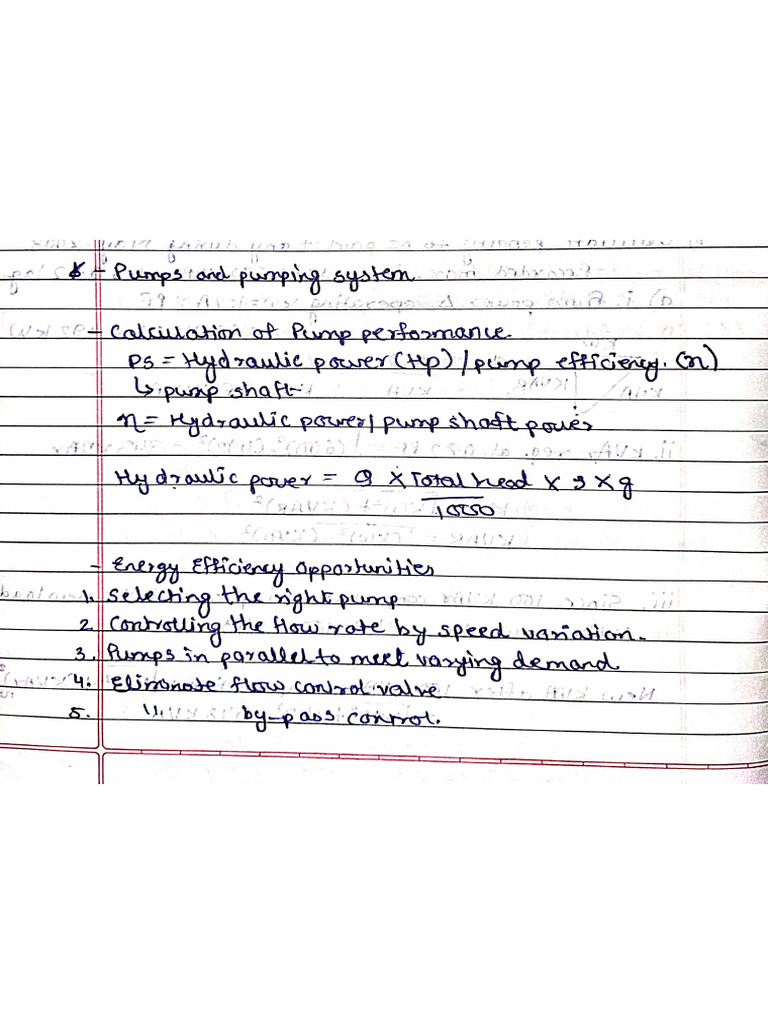 * - Pumps and pumping system.
- Calculation of Pump performance.
Ps = Hydraulic power (Hp) / pump efficiency. (η)
↳ pump shaft
η = Hydraulic power / pump shaft power
Hydraulic power = Q × Total head × ρ × g
1000
- Energy Efficiency Opportunities
1. Selecting the right pump
2. Controlling the flow rate by speed variation.
3. Pumps in parallel to meet varying demand.
4. Eliminate flow control valve
5. 〃 by-pass control.